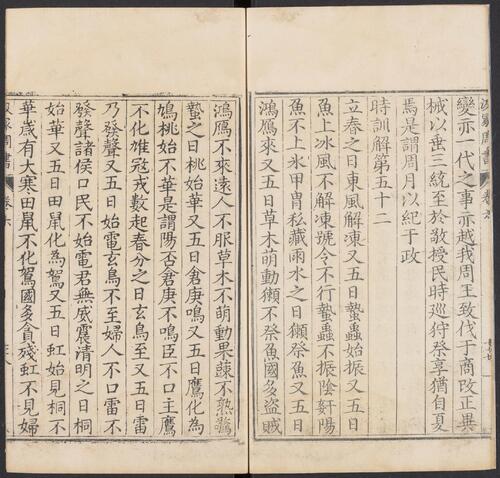 變亦一代之事亦越我周王致伐于商改正異
械以垂三統至於敬授民時巡狩祭享猶自夏
焉是謂周月以紀于政
時訓解第五十二
立春之日東風解凍又五日蟄蟲始振又五日
魚上冰風不解凍號令不行蟄蟲不振陰姧陽
魚不上氷甲冑私藏雨水之日獺祭魚又五日
鴻鴈來又五日草木萌動獺不祭魚國多盜賊
鴻鴈不來遠人不服草木不萌動果蔬不熟驚
蟄之日桃始華又五日倉庚鳴又五日鷹化為
鳩桃始不華是謂陽否倉庚不鳴臣不口主鷹
不化鳩冦戎數起春分之日玄鳥至又五日雷
乃發聲又五日始電玄鳥不至婦人不口雷不
發聲諸侯口民不始電君無威震清明之日桐
始華又五日田䑕化為鴽又五日虹始見桐不
華歲有大寒田䑕不化鴽國多貪殘虹不見婦
汲冢周書 卷六